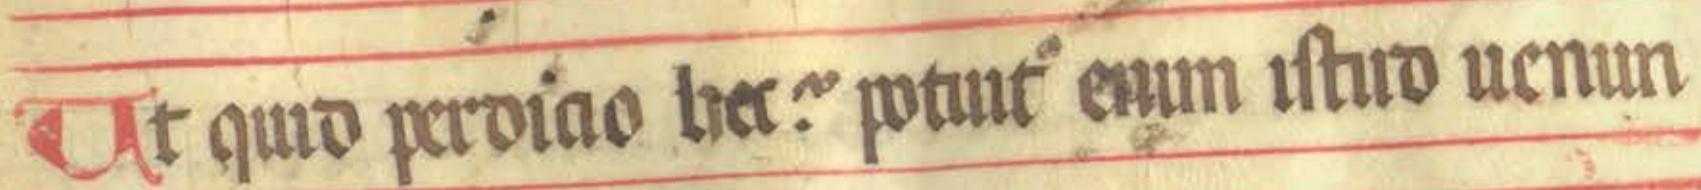 Ut quid perdicio hec? potuit enim istud uenun